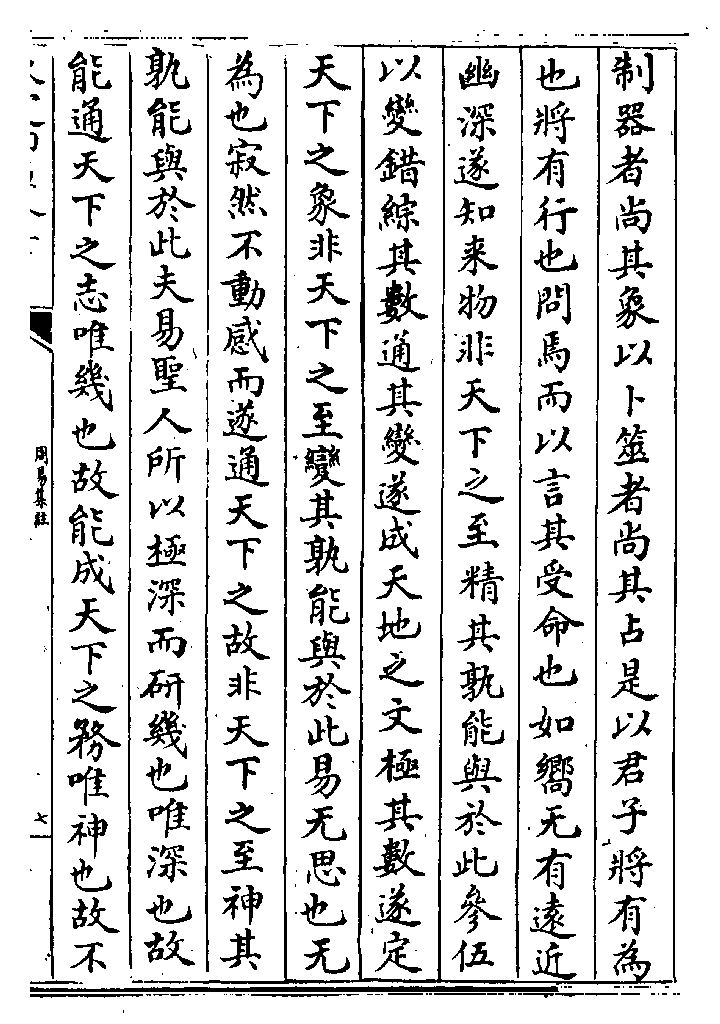 制器者尚其象以卜筮者尚其占是以君子將有為
也將有行也問焉而以言其受命也如嚮无有遠近
幽深遂知来物非天下之至精其孰能與於此參伍
以變錯綜其數通其變遂成天地之文極其數遂定
天下之象非天下之至變其孰能與於此易无思也无
為也寂然不動感而遂通天下之故非天下之至神其
孰能與於此夫易聖人所以極深而研幾也唯深也故
能通天下之志唯幾也故能成天下之務唯神也故不
周易集註
七